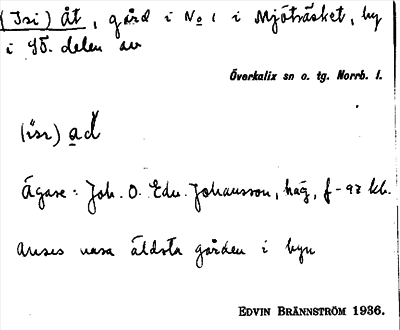 (Isi) åt, gård i No 1 i Mjöträsket, by
i sö. delen av
Överkalix sn o. tg. Norrb. l.
(isı) ad
Ägare: Joh. O. Edv. Johansson, häg, f-92 kb.
Anses vara äldsta gården i byn
EDVIN BRÄNNSTRÖM 1936.